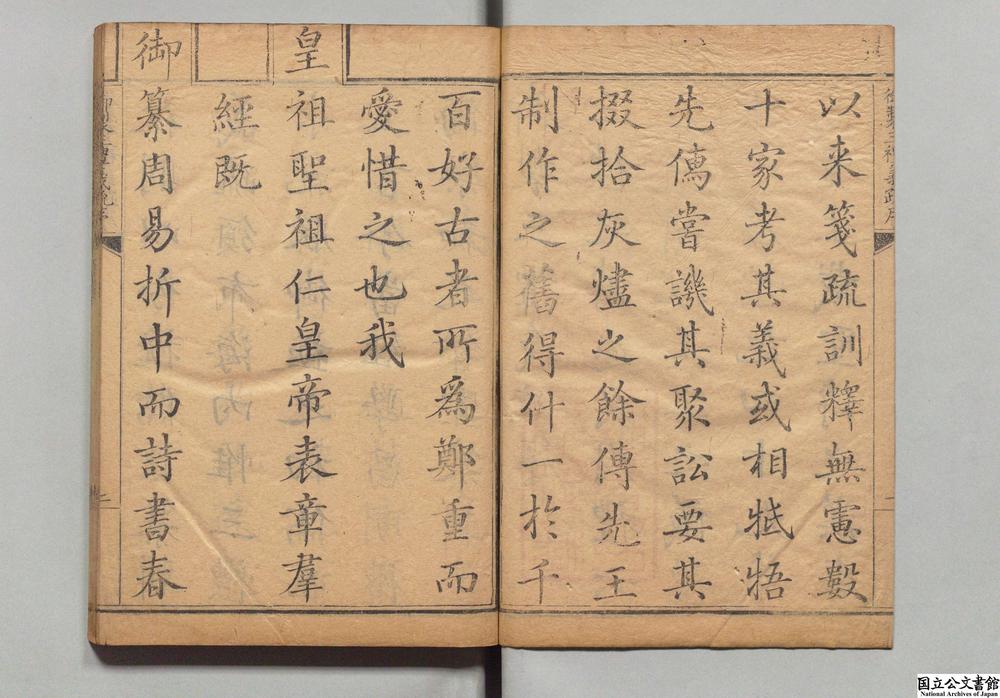 以来箋疏訓釋無慮數
十家考其義或相牴牾
先儒嘗譏其聚訟要其
掇拾灰燼之餘傳先王
制作之舊得什一於千
百好古者所為鄭重而
愛惜之也我
皇祖聖祖仁皇帝表章羣
經既
御纂周易折中而詩書春
国立公文書館
National Archives of Japan